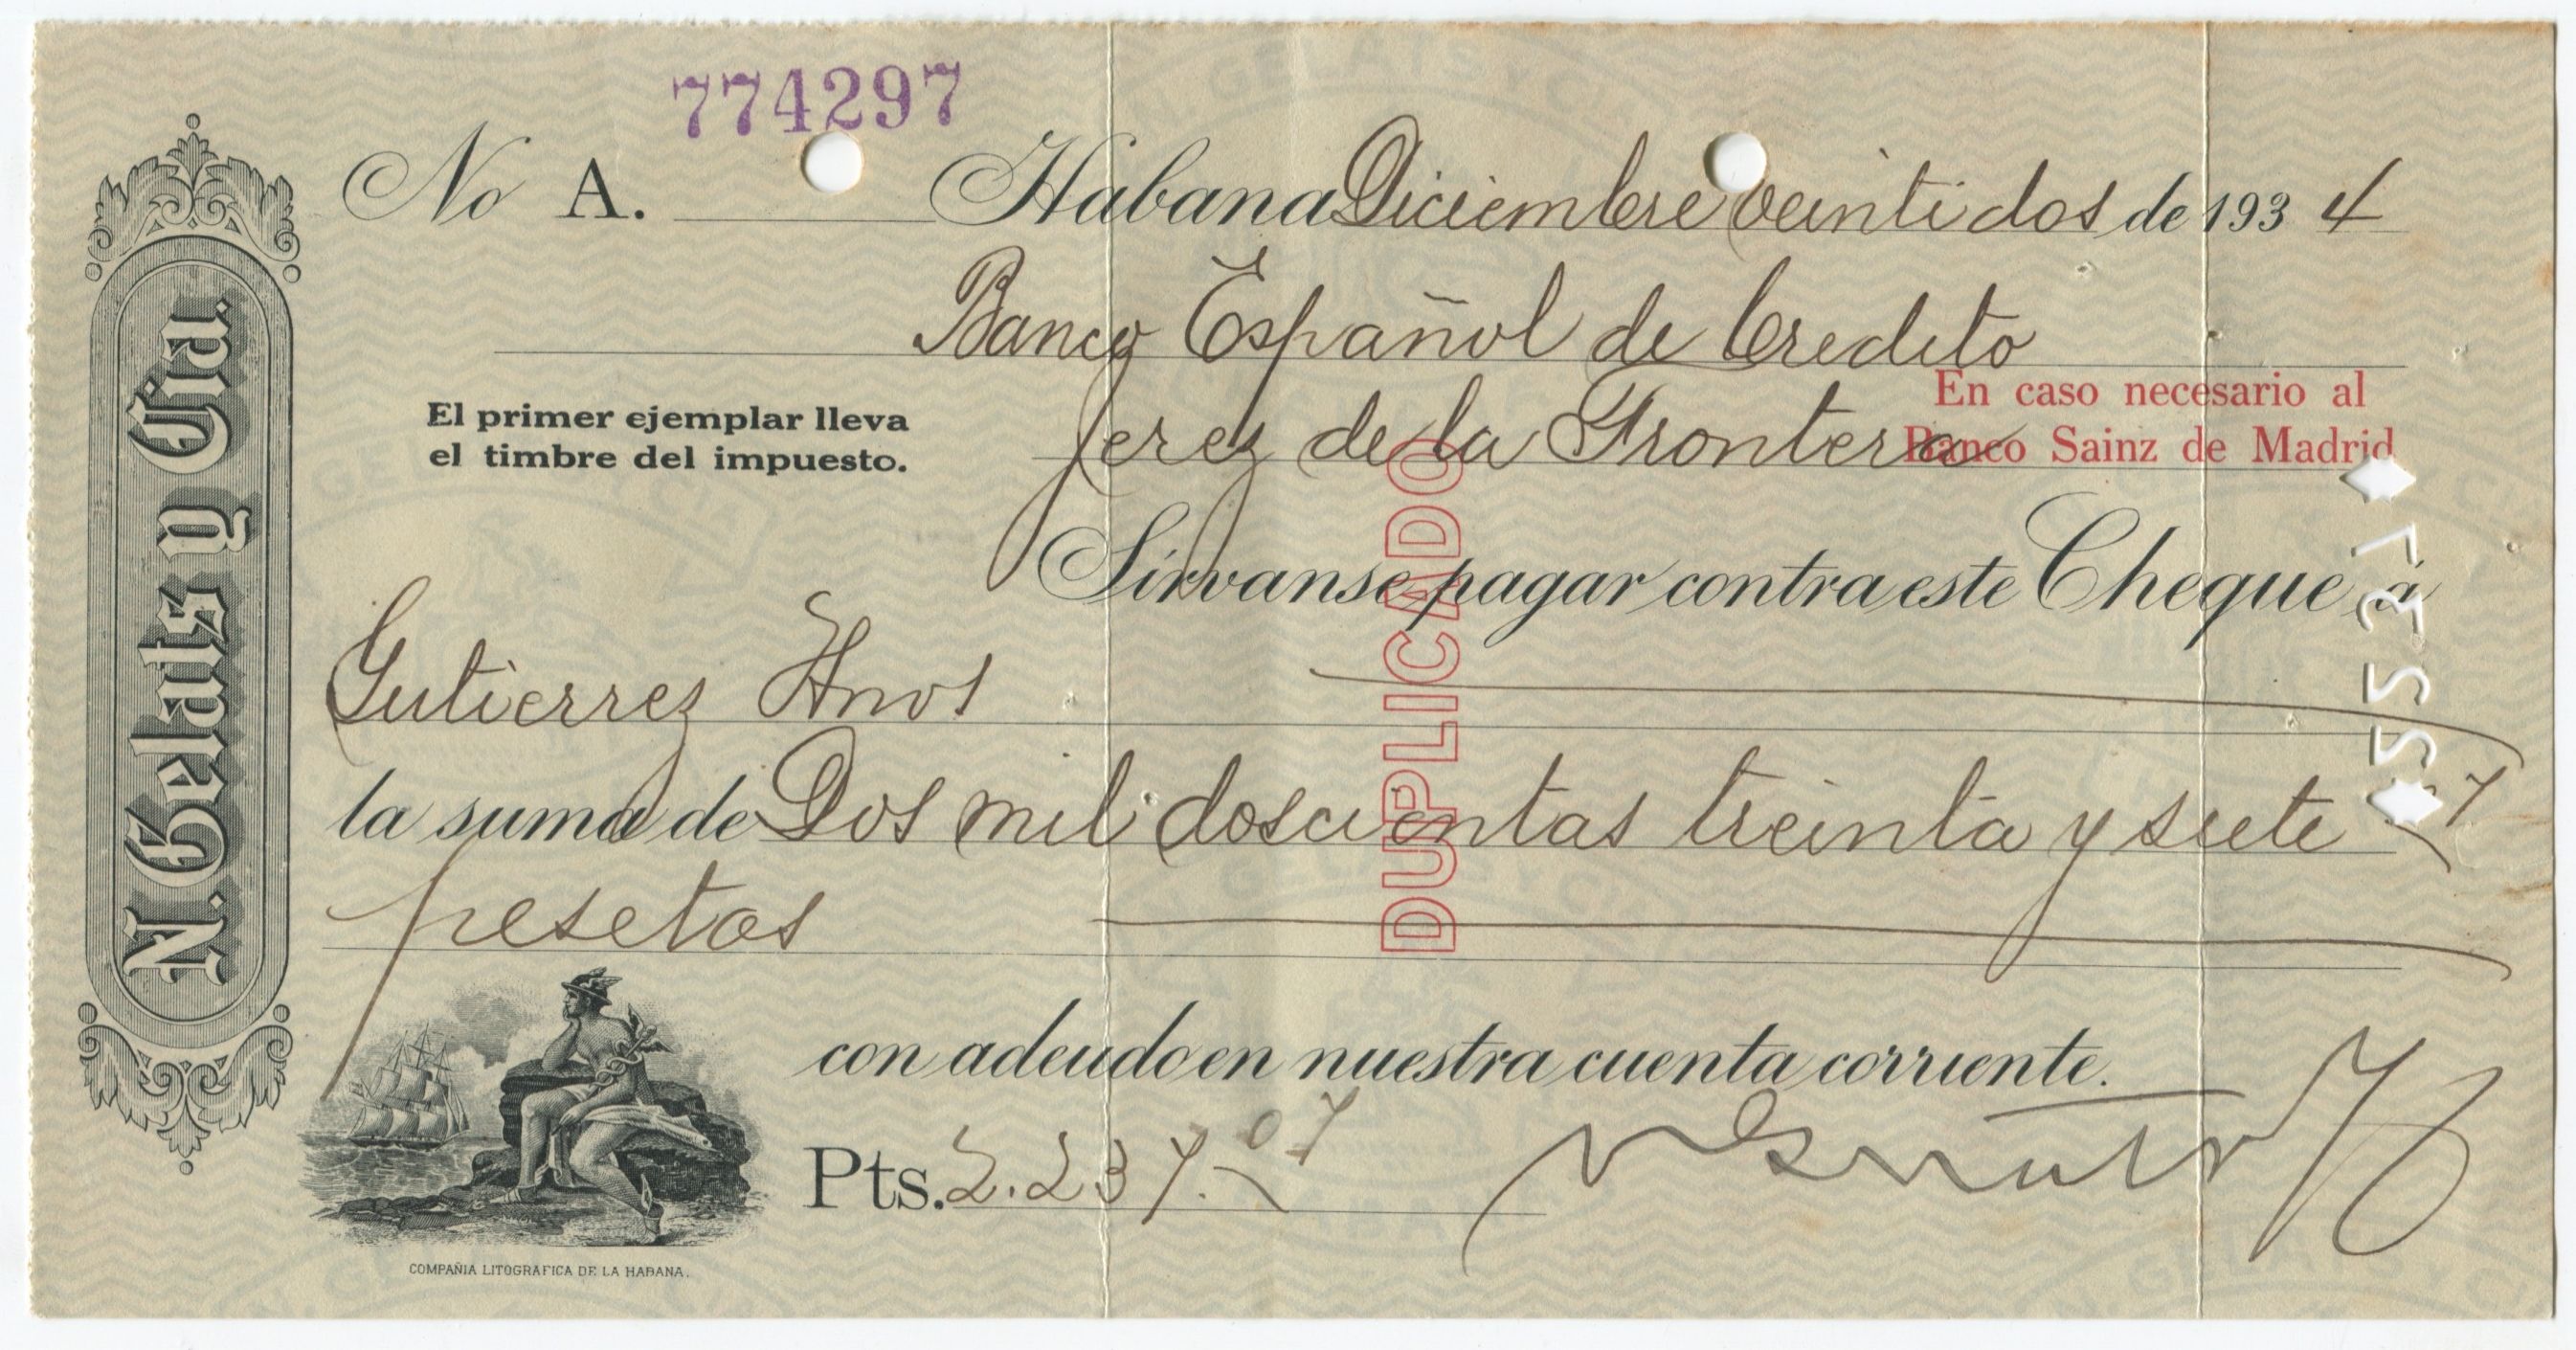 774297
No A. Habana Diciembre veintidos de 1934
Banco Español de Credito
Jerez de la Frontera
En caso necesario al
Banco Sainz de Madrid
El primer ejemplar lleva
el timbre del impuesto.
Sírvanse pagar contra este Cheque á
Gutierrez Hnos
la suma de Dos mil doscientas treinta y siete 07
pesetas
con adeudo en nuestra cuenta corriente.
Pts. 2.237.07
N. Gelats y Cia.
DUPLICADO
COMPAÑIA LITOGRAFICA DE LA HABANA.